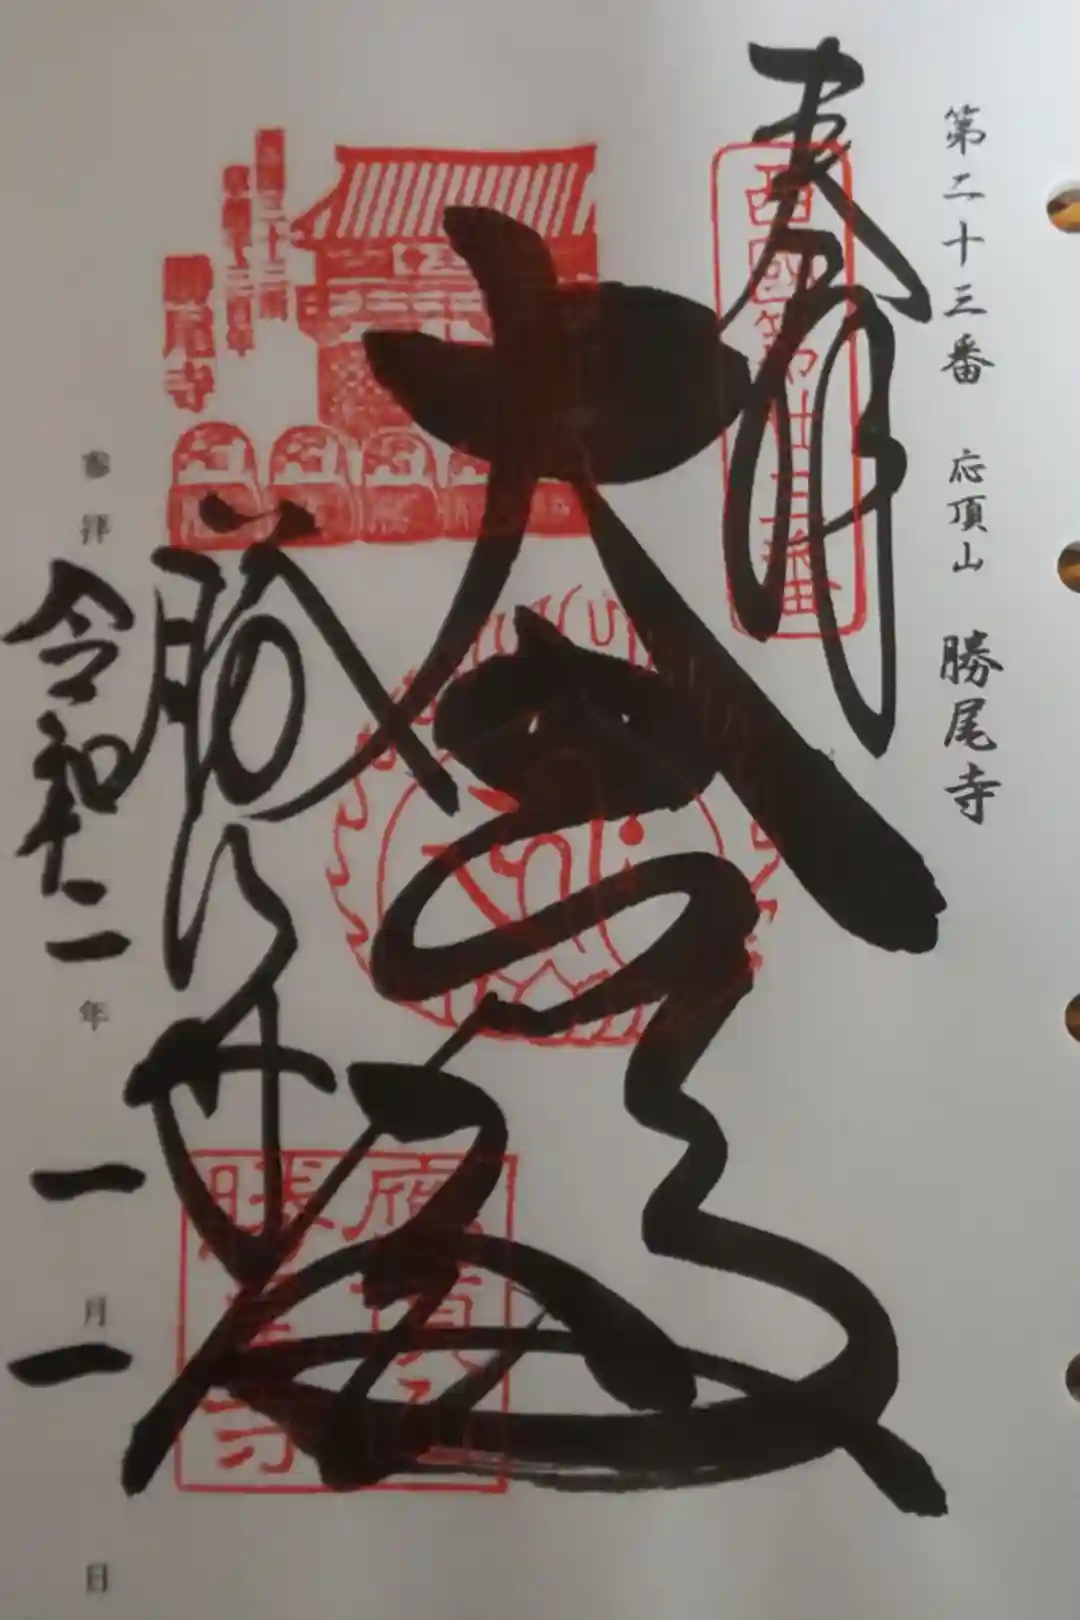 第二十三番 応頂山 勝尾寺
奉拝
西國第廿三番
大悲殿
應頂山
勝尾寺
勝尾寺
勝尾寺
参拝 令和二年 一月一日